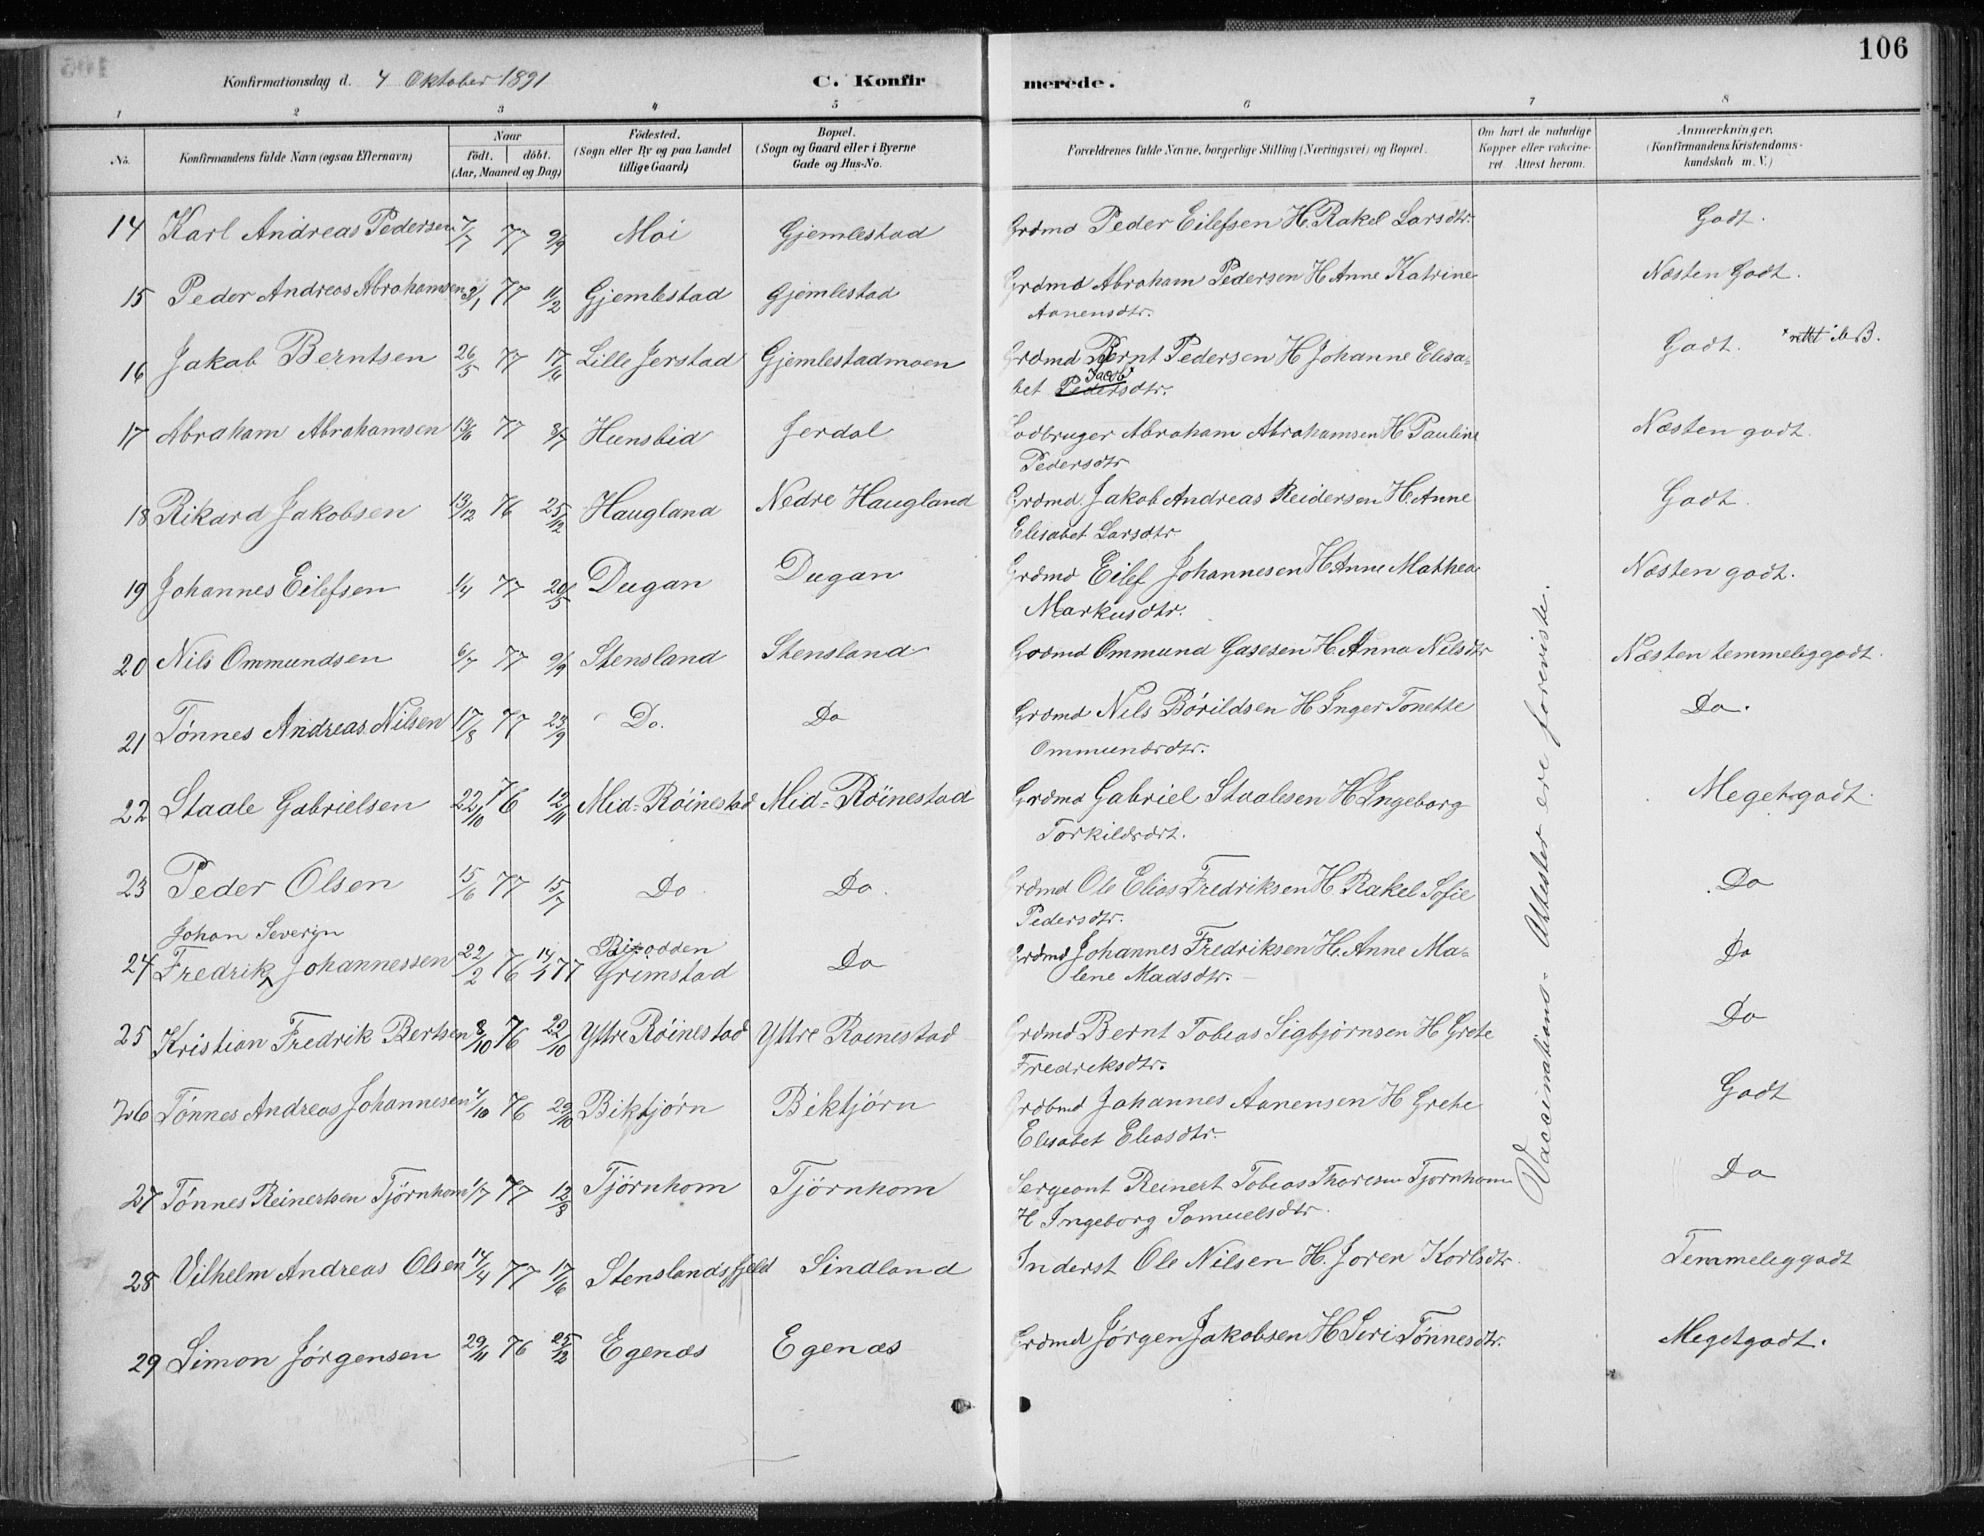 106
Konfirmationsdag d. 4 Oktober 1891 C. Konfir merede.
1 2 3 4 5 6 7 8
No. Konfirmandens fulde Navn (ogsaa Efternavn) Naar födt. döbt. (Aar, Maaned og Dag) Födested. (Sogn eller By og paa Landet tillige Gaard) Bopæl. (Sogn og Gaard eller i Byerne Gade og Hus-No. Forældrenes fulde Navne, borgerlige Stilling (Næringsvei) og Bopæl. Om havt de naturlige Kopper eller vakcineret. Attest herom. Anmærkninger. (Konfirmandens Kristendomskundskab m. V.)
14 Karl Andreas Pedersen 7/7 77 9/9 Moi Gjemlestad Grdmd Peder Eilefsen H. Rakel Larsdtr. Godt.
15 Peder Andreas Abrahamsen 77 11/2 Gjemlestad Gjemlestad Grdmd Abraham Pedersen H. Anne Katrine Næsten Godt.
Aanensdtr.
16 Jakob Berntsen 26/5 77 17/6 Lille Jerstad Gjemlestadmoen Grdmd Bernt Pedersen H Johanne Elisa- Godt. * rettet
bet Pedersdtr. Jacob*
17 Abraham Abrahamsen 13/6 77 8/7 Hunsbid Jerdal Lodbruger Abraham Abrahamsen H Pauline Næsten godt.
Pedersdtr
18 Rikard Jakobsen 13/12 76 25/12 Haugland Nedre Haugland Grdmd Jakob Andreas Reidersen H. Anne Godt.
Elisabet Larsdtr
19 Johannes Eilefsen 1/4 77 20/5 Dugan Dugan Grdmd Eilef Johannesen H. Anne Mathea Næsten godt.
Markusdtr.
20 Nils Ommundsen 6/7 77 9/9 Stensland Stensland Grdmd Ommund Gasesen H. Anna Nilsdtr Næsten temmeliggodt.
21 Tønnes Andreas Nilsen 17/8 77 23/9 Do. Do Grdmd Nils Börildsen H Inger Tonette Do.
Ommundsdtr.
22 Staale Gabrielsen 22/10 76 12/11 Mid-Röinestad Mid-Röinestad Grdmd Gabriel Staalesen H Ingeborg Megetgodt.
Torkildsdrt.
23 Peder Olsen 15/6 77 15/7 Do Do. Grdmd Ole Elias Fredriksen H Rakel Sofie Do
Pedersdtr.
Johan Severin
24 Fredrik Johannessen 22/2 76 14/1 77 Grimstad Do Grdmd Johannes Fredriksen H. Anne Ma- Do
lene Madsdtr.
25 Kristian Fredrik Bertsen 8/10 76 22/10 Yttre Röinestad Yttre Roinestad Grdmd Bernt Tobias Sigbjørnsen H Grete Do
Fredriksdtr.
26 Tønnes Andreas Johannesen 4/10 76 29/10 Biktjørn Biktjörn Grdbmd Johannes Aanensen H Grete Godt
Elisabet Eliasdtr.
27 Tønnes Reinertsen Tjörnhom 1/7 77 Tjörnhom Tjörnhom Sergeant Reinert Tobias Thoresen Tjornhom Do
H Ingeborg Samuelsdtr.
28 Vilhelm Andreas Olsen 14/4 77 17/6 Stenslandsfjeld Sindland Inderst Ole Nilsen H. Joren Korlsdtr. Temmeliggodt
29 Simon Jörgensen 29/11 76 25/12 Egenæs Egenæs Grdmd Jörgen Jakobsen H Siri Tönnesdtr. Megetgodt.
Vaccinations- Attester ere foreviste.